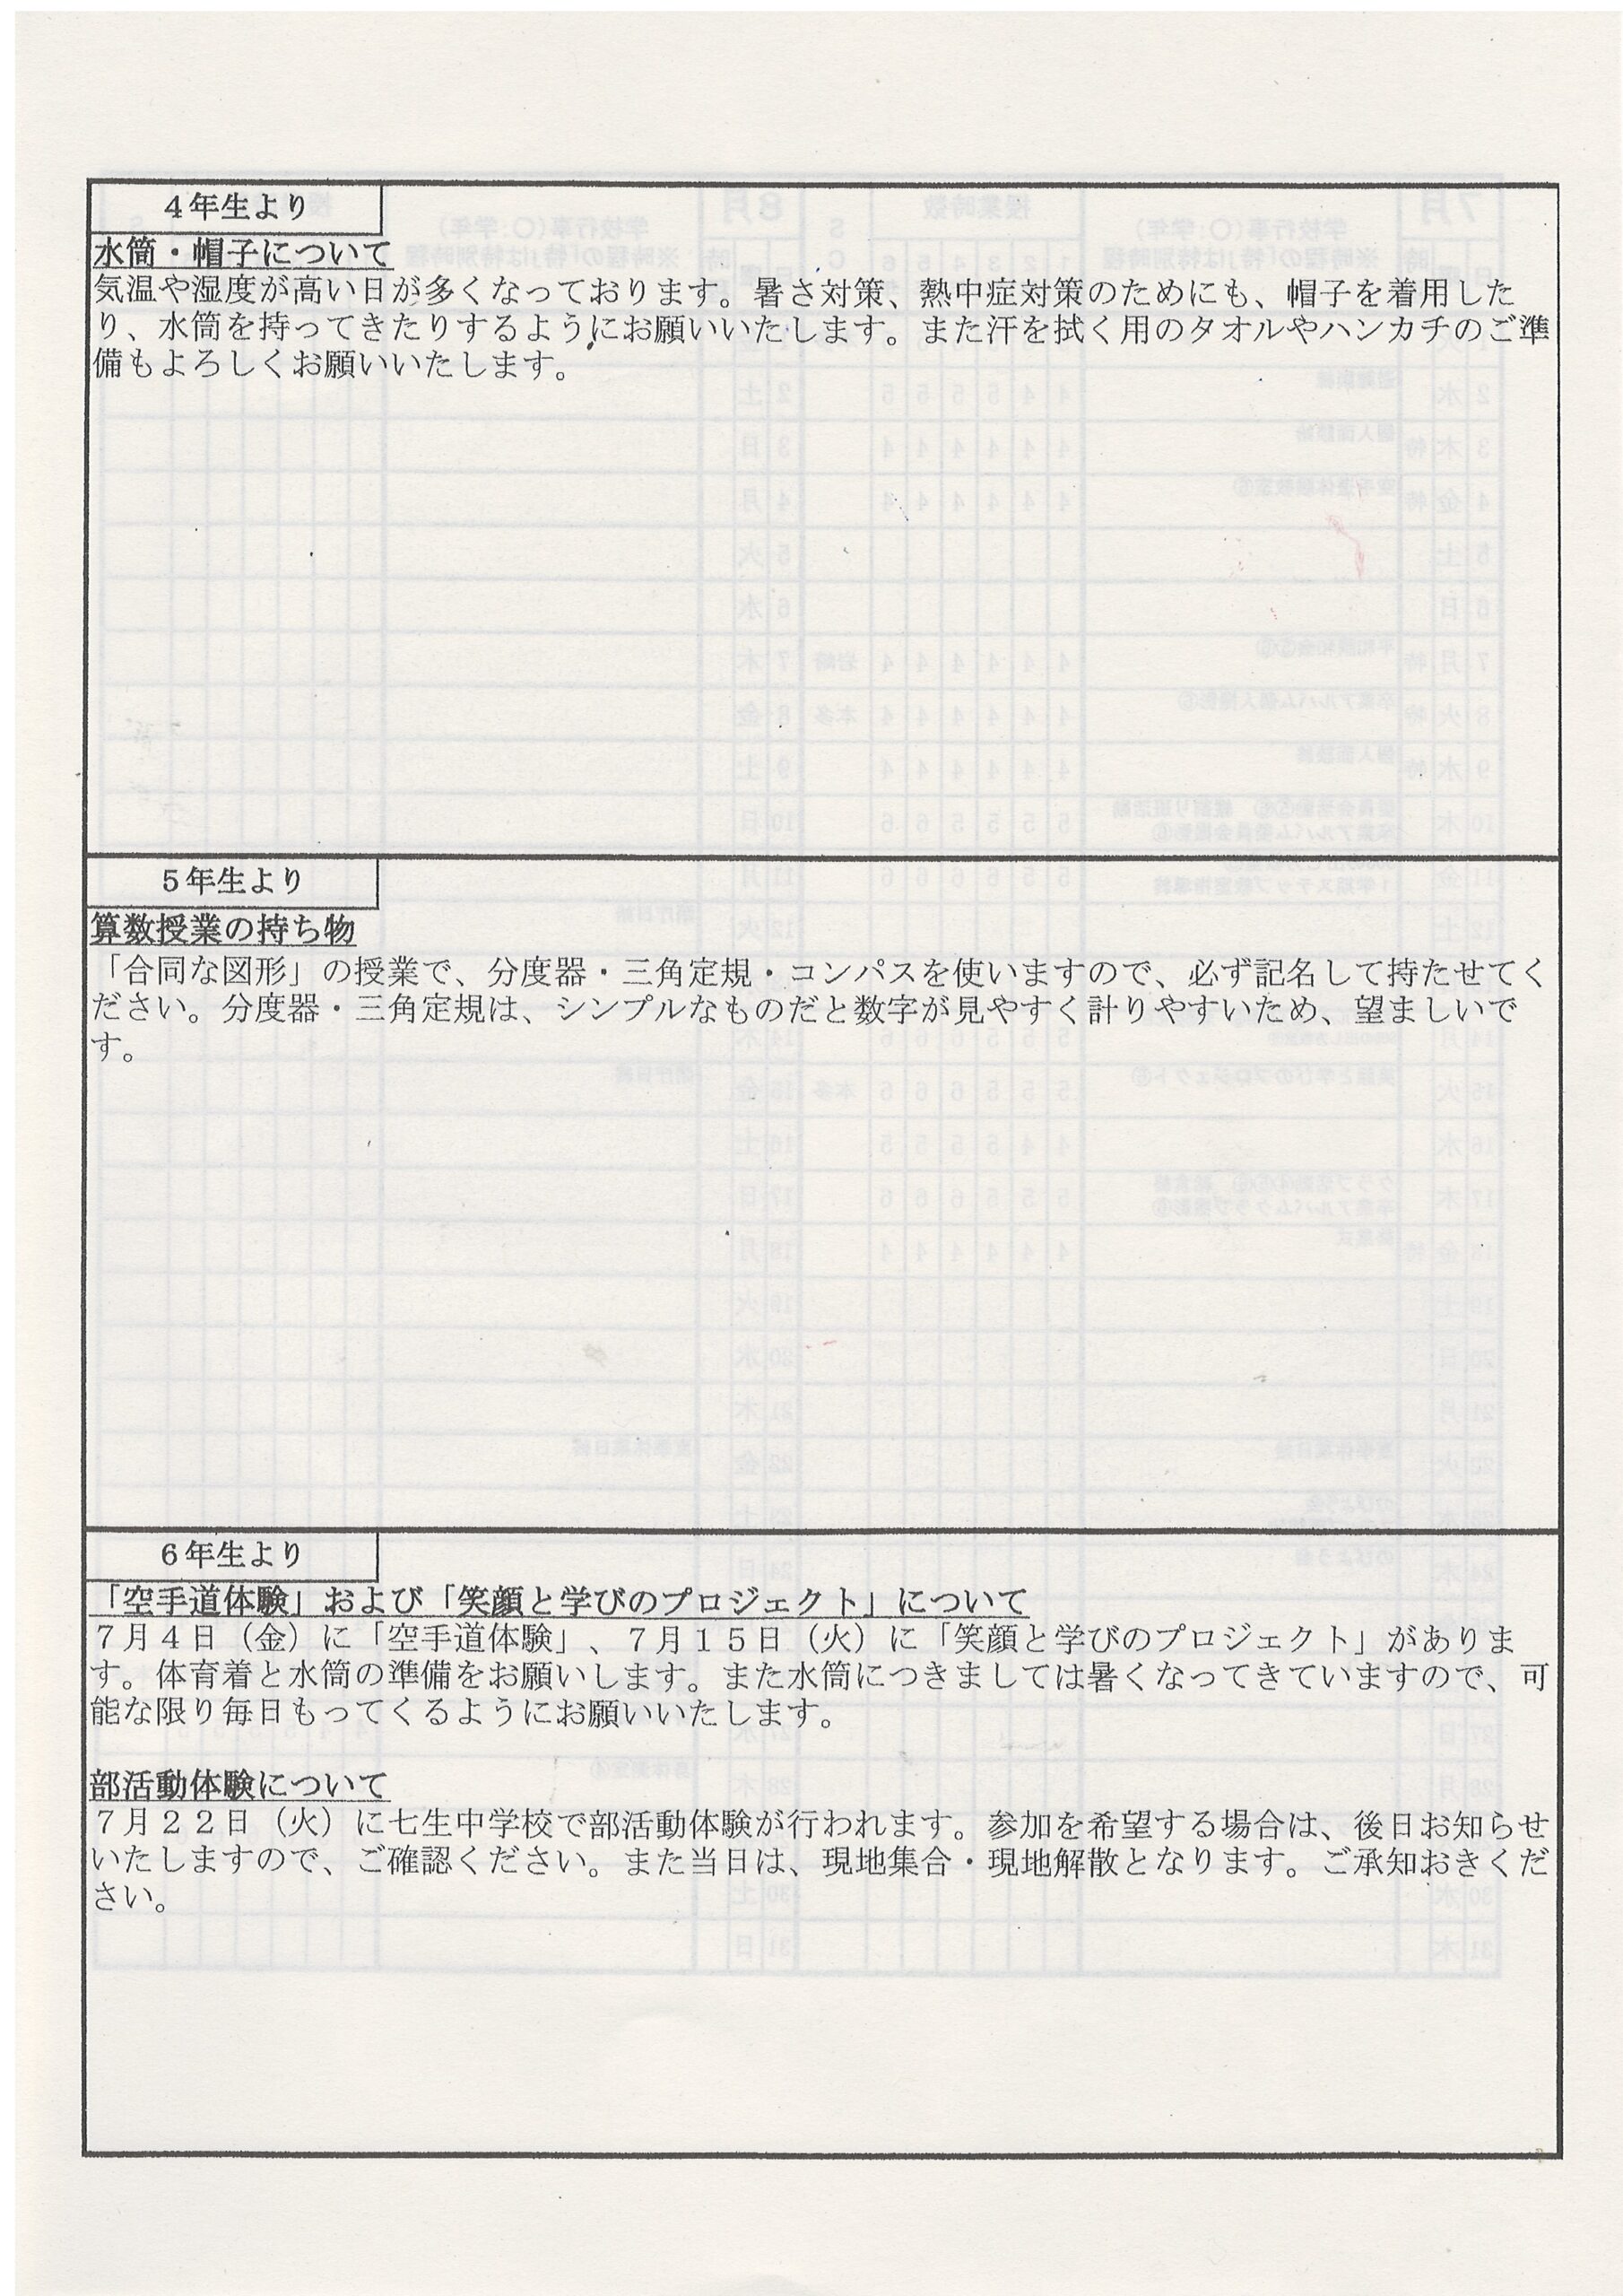 ４年生より
水筒・帽子について
気温や湿度が高い日が多くなっております。暑さ対策、熱中症対策のためにも、帽子を着用した
り、水筒を持ってきたりするようにお願いいたします。また汗を拭く用のタオルやハンカチのご準
備もよろしくお願いいたします。
５年生より
算数授業の持ち物
「合同な図形」の授業で、分度器・三角定規・コンパスを使いますので、必ず記名して持たせてく
ださい。分度器・三角定規は、シンプルなものだと数字が見やすく計りやすいため、望ましいで
す。
６年生より
「空手道体験」および「笑顔と学びのプロジェクト」について
７月４日（金）に「空手道体験」、７月１５日（火）に「笑顔と学びのプロジェクト」がありま
す。体育着と水筒の準備をお願いします。また水筒につきましては暑くなってきていますので、可
能な限り毎日もってくるようにお願いいたします。
部活動体験について
７月２２日（火）に七生中学校で部活動体験が行われます。参加を希望する場合は、後日お知らせ
いたしますので、ご確認ください。また当日は、現地集合・現地解散となります。ご承知おきくだ
さい。